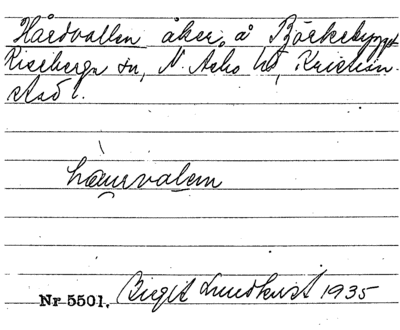 Hårdvallen åker, å Börkebygget
Riseberga sn, N. Asbo hd, Kristian-
stad l.
hårvalem
Nr 5501. Birgit Lundkvist 1935